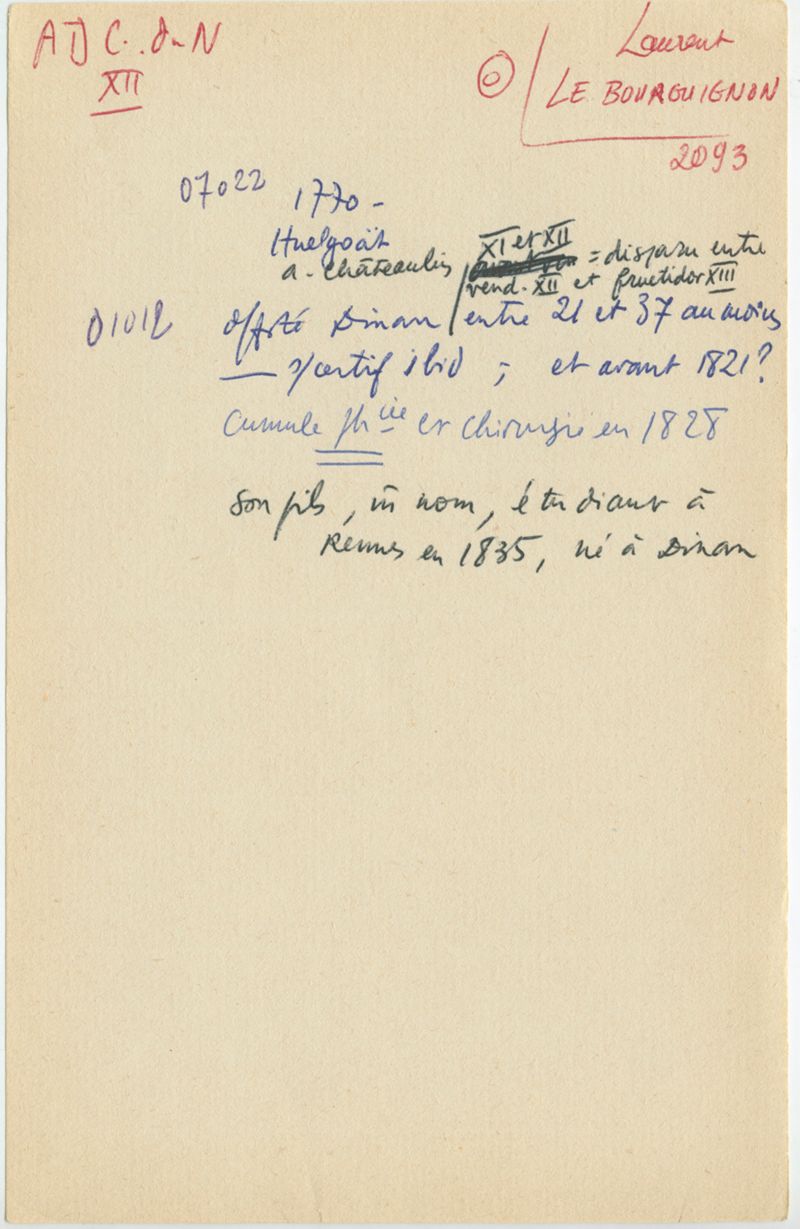 AD C. du N
XII
Laurent
LE BOURGUIGNON
2093
07022 1770 -
Huelgoät
a. Châteaulin XI et XII = disparu entre
vend. XII et fructidor XIII
01012 Dinan entre 21 et 37 au moins
s/certif ibid ; et avant 1821?
Cumule phcie et chirurgie en 1828
son fils, m̄ nom, étudiant à
Rennes en 1835, né à Dinan